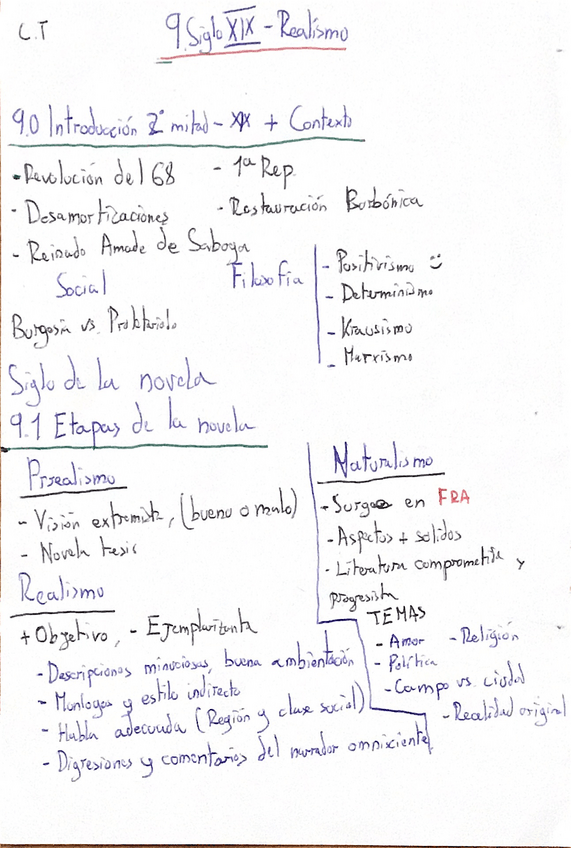 C.T
9. Siglo XIX - Realismo
9.0 Introducción 2ª mitad - XIX + Contexto
- Revolución del 68
- 1ª Rep.
- Desamortizaciones
- Restauración Borbónica
- Reinado Amade de Saboya
Social
Burgosía vs. Proletariado
Filosofía
- Positivismo
- Determinismo
- Krausismo
- Marxismo
Siglo de la novela
9.1 Etapas de la novela
Prrealismo
- Visión extremista, (bueno o malo)
- Novela tesis
Realismo
+ Objetivo, - Ejemplarizante
- Descripciones minuciosas, buena ambientación
- Monlogos y estilo indirecto
- Habla adecuada (Región y clase social)
- Digresiones y comentarios del narrador omnisciente
Naturalismo
- Surge en FRA
- Aspectos + solidos
- Literatura comprometida y
progresista
TEMAS
- Amor - Religión
- Política
- Campo vs. ciudad
- Realidad original